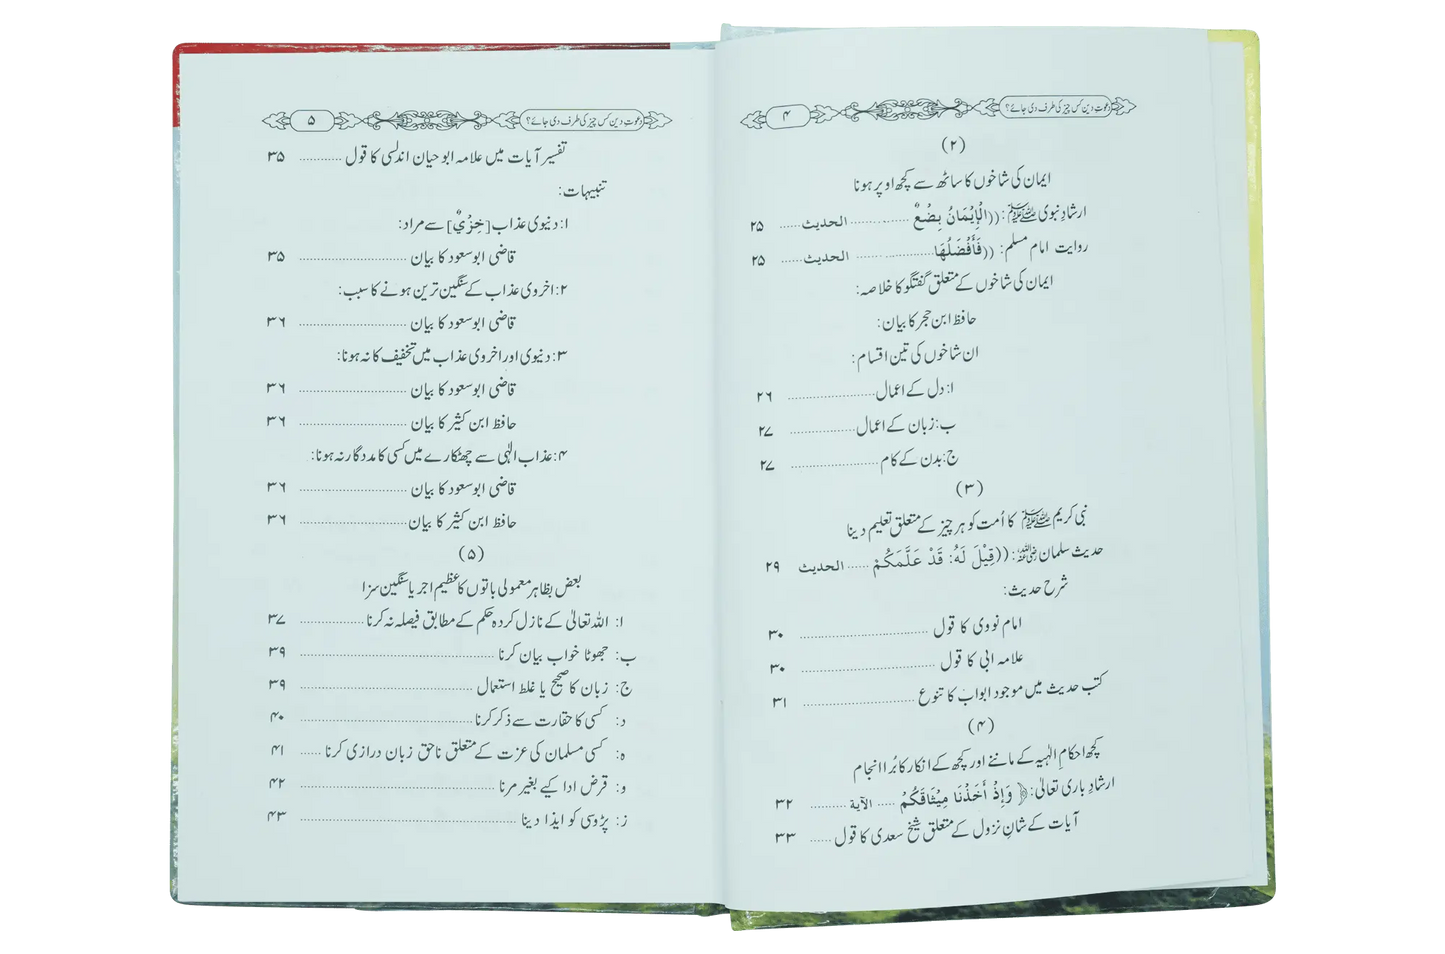 ۴ دعوتِ دین کس چیز کی طرف دی جائے؟
(۲)
ایمان کی شاخوں کا ساٹھ سے کچھ اوپر ہونا
ارشادِ نبوی ﷺ: ((الْإِيْمَانُ بِضْعٌ ........ الحدیث ...... ۲۵
روایت امام مسلم: ((فَأَفْضَلُهَا ........ الحدیث ...... ۲۵
ایمان کی شاخوں کے متعلق گفتگو کا خلاصہ:
حافظ ابن حجر کا بیان:
ان شاخوں کی تین اقسام:
ا: دل کے اعمال ........ ۲۶
ب: زبان کے اعمال ........ ۲۷
ج: بدن کے کام ........ ۲۷
(۳)
نبی کریم ﷺ کا اُمت کو ہر چیز کے متعلق تعلیم دینا
حدیث سلمان رضی اللہ عنہ: ((قِيْلَ لَهُ: قَدْ عَلَّمَكُمْ ...... الحدیث ۲۹
شرح حدیث:
امام نووی کا قول ........ ۳۰
علامہ ابی کا قول ........ ۳۰
کتب حدیث میں موجود ابواب کا تنوع ........ ۳۱
(۴)
کچھ احکامِ الٰہیہ کے ماننے اور کچھ کے انکار کا بُرا انجام
ارشادِ باری تعالیٰ: ﴿ وَإِذْ أَخَذْنَا مِيْثَاقَكُمْ ..... الآیة ........ ۳۲
آیات کے شانِ نزول کے متعلق شیخ سعدی کا قول ...... ۳۳
۵ دعوتِ دین کس چیز کی طرف دی جائے؟
تفسیر آیات میں علامہ ابوحیان اندلسی کا قول ........ ۳۵
تنبیہات:
۱: دنیوی عذاب [خِزْيٌ] سے مراد:
قاضی ابوسعود کا بیان ........ ۳۵
۲: اخروی عذاب کے سنگین ترین ہونے کا سبب:
قاضی ابوسعود کا بیان ........ ۳۶
۳: دنیوی اور اخروی عذاب میں تخفیف کا نہ ہونا:
قاضی ابوسعود کا بیان ........ ۳۶
حافظ ابن کثیر کا بیان ........ ۳۶
۴: عذاب الٰہی سے چھٹکارے میں کسی کا مددگار نہ ہونا:
قاضی ابوسعود کا بیان ........ ۳۶
حافظ ابن کثیر کا بیان ........ ۳۶
(۵)
بعض بظاہر معمولی باتوں کا عظیم اجر یا سنگین سزا
ا: اللہ تعالیٰ کے نازل کردہ حکم کے مطابق فیصلہ نہ کرنا ........ ۳۷
ب: جھوٹا خواب بیان کرنا ........ ۳۹
ج: زبان کا صحیح یا غلط استعمال ........ ۳۹
د: کسی کا حقارت سے ذکر کرنا ........ ۴۰
ہ: کسی مسلمان کی عزت کے متعلق ناحق زبان درازی کرنا ...... ۴۱
و: قرض ادا کیے بغیر مرنا ........ ۴۲
ز: پڑوسی کو ایذا دینا ........ ۴۳